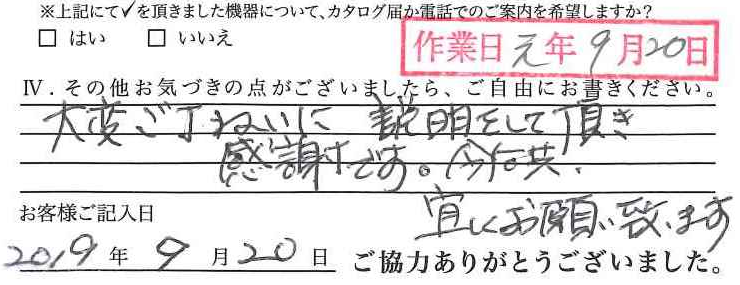 ※上記にて✓を頂きました機器について、カタログ届か電話でのご案内を希望しますか?
□ はい □ いいえ
作業日 元年 9月20日
Ⅳ．その他お気づきの点がございましたら、ご自由にお書きください。
大変ご丁ねいに 説明をして頂き
感謝です。今后共、
宜しくお願い致します
お客様ご記入日
2019 年 9 月 20 日 ご協力ありがとうございました。